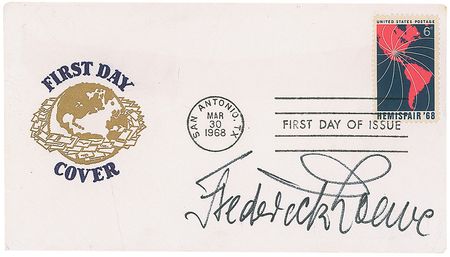 FIRST DAY
COVER
SAN ANTONIO, TX
MAR
30
1968
FIRST DAY OF ISSUE
UNITED STATES POSTAGE
6¢
HEMISFAIR '68
Frederick Loewe